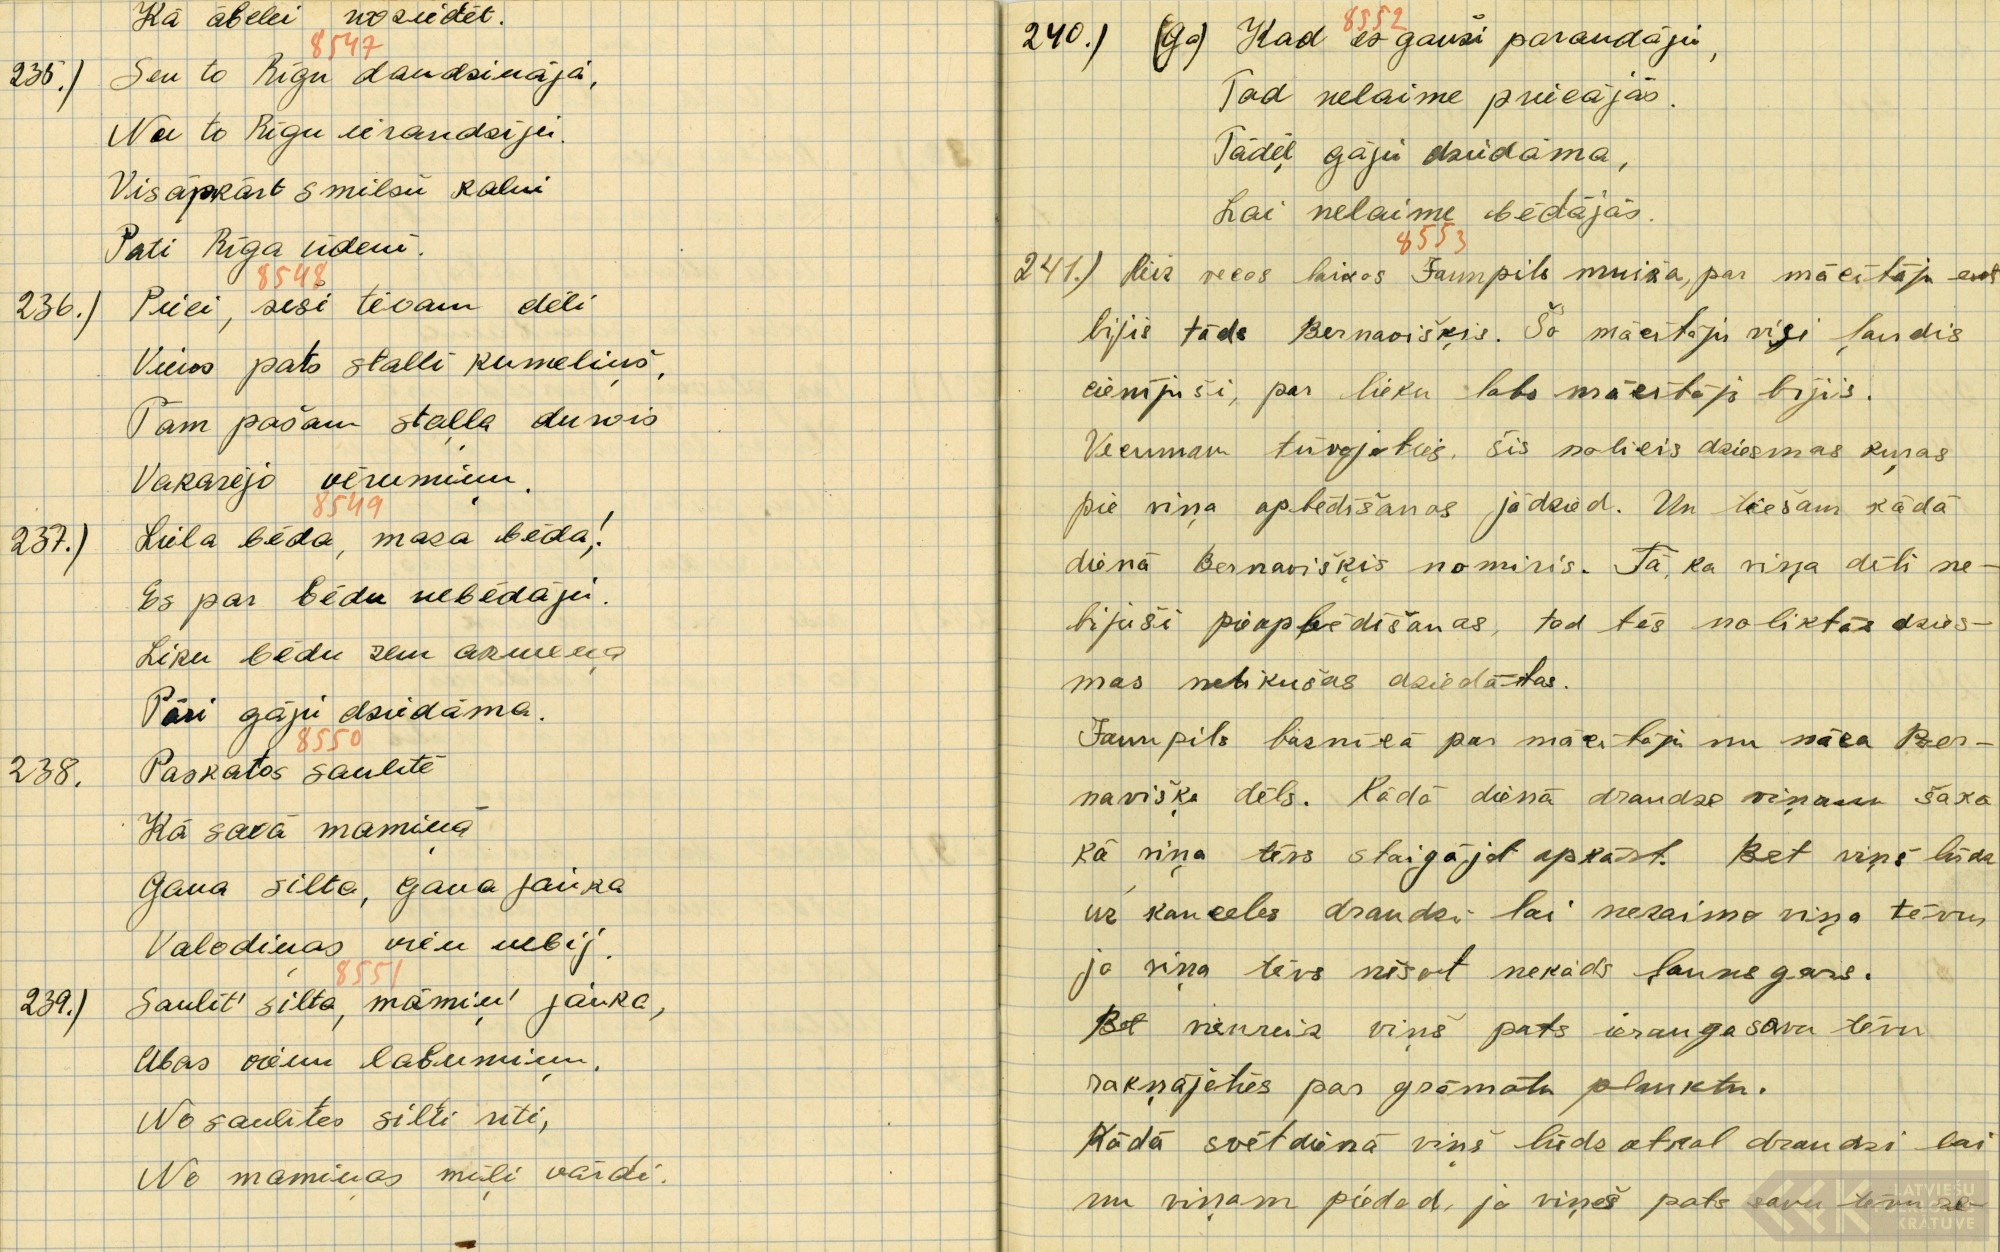 Kā ābelei noziedēt.
8547
235.) Sen to Rīgu daudzināja,
Nu to Rīgu ieraudzīju.
Visapkārt smilšu kalni
Pati Rīga ūdenī.
8548
236.) Pieci, seši tēvam dēli
Viens pats stallī kumeliņš,
Tam pašam staļļa durvis
Vakarējo vērumiņu.
8549
237.) Liela bēda, maza bēda,!
Es par bēdu nebēdāju.
Liku bēdu zem akmeņa
Pāri gāju dziedāma.
8550
238. Paskatos saulītē
Kā savā māmiņā
Gana silta, gana jauka
Valodiņas vien nebij.
8551
239.) Saulīt' silta, māmiņ' jauka,
Abas vienu labumiņu.
No saulītes silti rīti,
No māmiņas mīļi vārdi.
8552
240.) (ga) Kad es gauži paraudāju,
Tad nelaime priecājās.
Tādēļ gāju dziedāma,
Lai nelaime bēdājās.
8553
241.) Reiz vecos laikos Jaunpils muižā, par mācītāju
bijis tāds Bernavišķis. Šo mācītāju visi ļaudis
cienījuši, par lieku labs mācītājs bijis.
Vecumam tuvojoties, šis nolicis dziesmas kuŗas
pie viņa apbēdīšanas jādzied. Un tiešam kādā
dienā Bernavišķis nomiris. Tā, ka viņa dēli ne-
bijuši pieapbēdīšanas, tad tās noliktās dzies-
mas netikušas dziedātas.
Jaunpils baznīcā par mācītāju nu nāca Ber-
navišķa dēls. Kādā dienā draudze viņam saka
kā viņa tēvs staigājot apkārt. Bet viņš lūdz
uz kanceles draudzi lai nezaimo viņa tēvu
jo viņa tēvs nēsot nekāds ļauns gars.
Bet vienreiz viņš pats ierauga savu tēvu
rakņājoties par grāmatu plauktu.
Kādā svētdienā viņš lūdz atkal draudzi lai
nu viņam piedod, jo viņš pats savu tēvu re-
LATVIEŠU
FOLKLORAS
KRĀTUVE